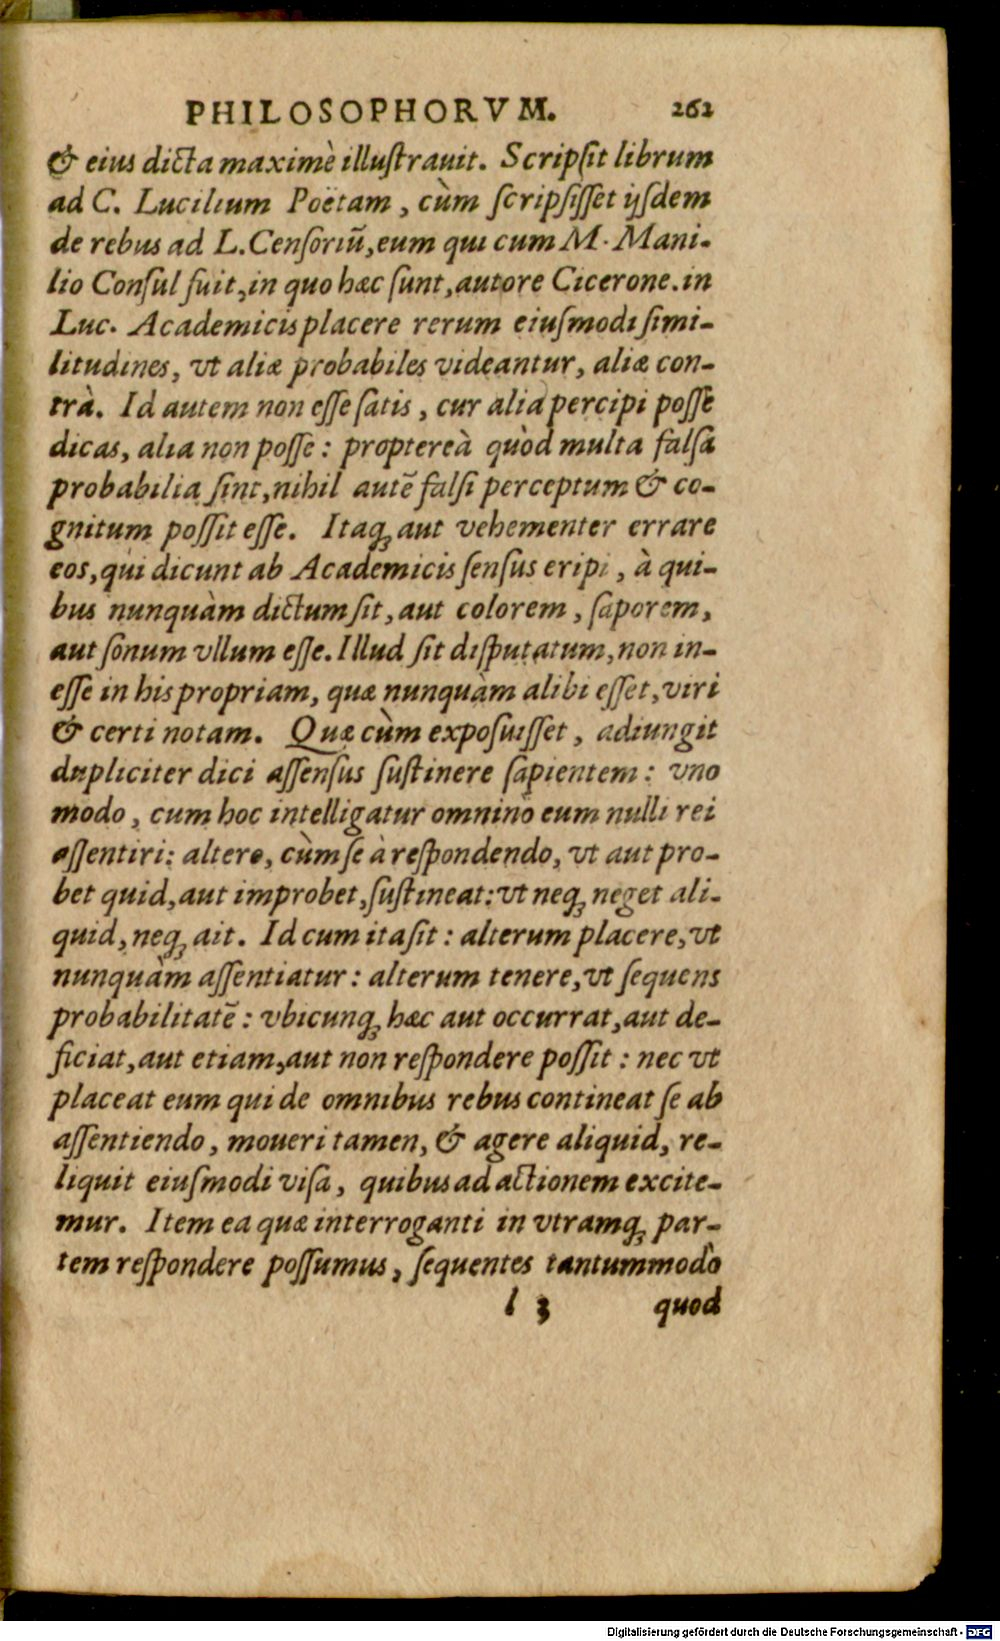 PHILOSOPHORVM. 262
& eius dicta maximè illuſtrauit. Scripſit librum
ad C. Lucilium Poëtam, cùm ſcripſiſſet ijſdem
de rebus ad L.Cenſoriū,eum qui cum M. Mani-
lio Conſul fuit,in quo hæc ſunt,autore Cicerone.in
Luc. Academicis placere rerum eiuſmodi ſimi-
litudines, vt aliæ probabiles videantur, aliæ con-
trà. Id autem non eſſe ſatis, cur alia percipi poſſe
dicas, alia non poſſe: proptereà quòd multa falſa
probabilia ſint,nihil autē falſi perceptum & co-
gnitum poſſit eſſe. Itaq; aut vehementer errare
eos,qui dicunt ab Academicis ſenſus eripi, à qui-
bus nunquàm dictum ſit,aut colorem, ſaporem,
aut ſonum vllum eſſe.Illud ſit diſputatum,non in-
eſſe in his propriam, quæ nunquàm alibi eſſet,viri
& certi notam. Quæ cùm expoſuiſſet, adiungit
dupliciter dici aſſenſus ſuſtinere ſapientem: vno
modo, cum hoc intelligatur omninò eum nulli rei
aſſentiri: altero, cùm ſe à reſpondendo, vt aut pro-
bet quid,aut improbet,ſuſtineat:vt neq; neget ali-
quid,neq; ait. Id cum ita ſit: alterum placere,vt
nunquàm aſſentiatur: alterum tenere,vt ſequens
probabilitatē: vbicunq; hæc aut occurrat,aut de-
ficiat,aut etiam,aut non reſpondere poſſit: nec vt
placeat eum qui de omnibus rebus contineat ſe ab
aſſentiendo, moueri tamen, & agere aliquid, re-
liquit eiuſmodi viſa, quibus ad actionem excite-
mur. Item ea quæ interroganti in vtramq; par-
tem reſpondere poſſumus, ſequentes tantummodò
l 3 quod
Digitalisierung gefördert durch die Deutsche Forschungsgemeinschaft - DFG